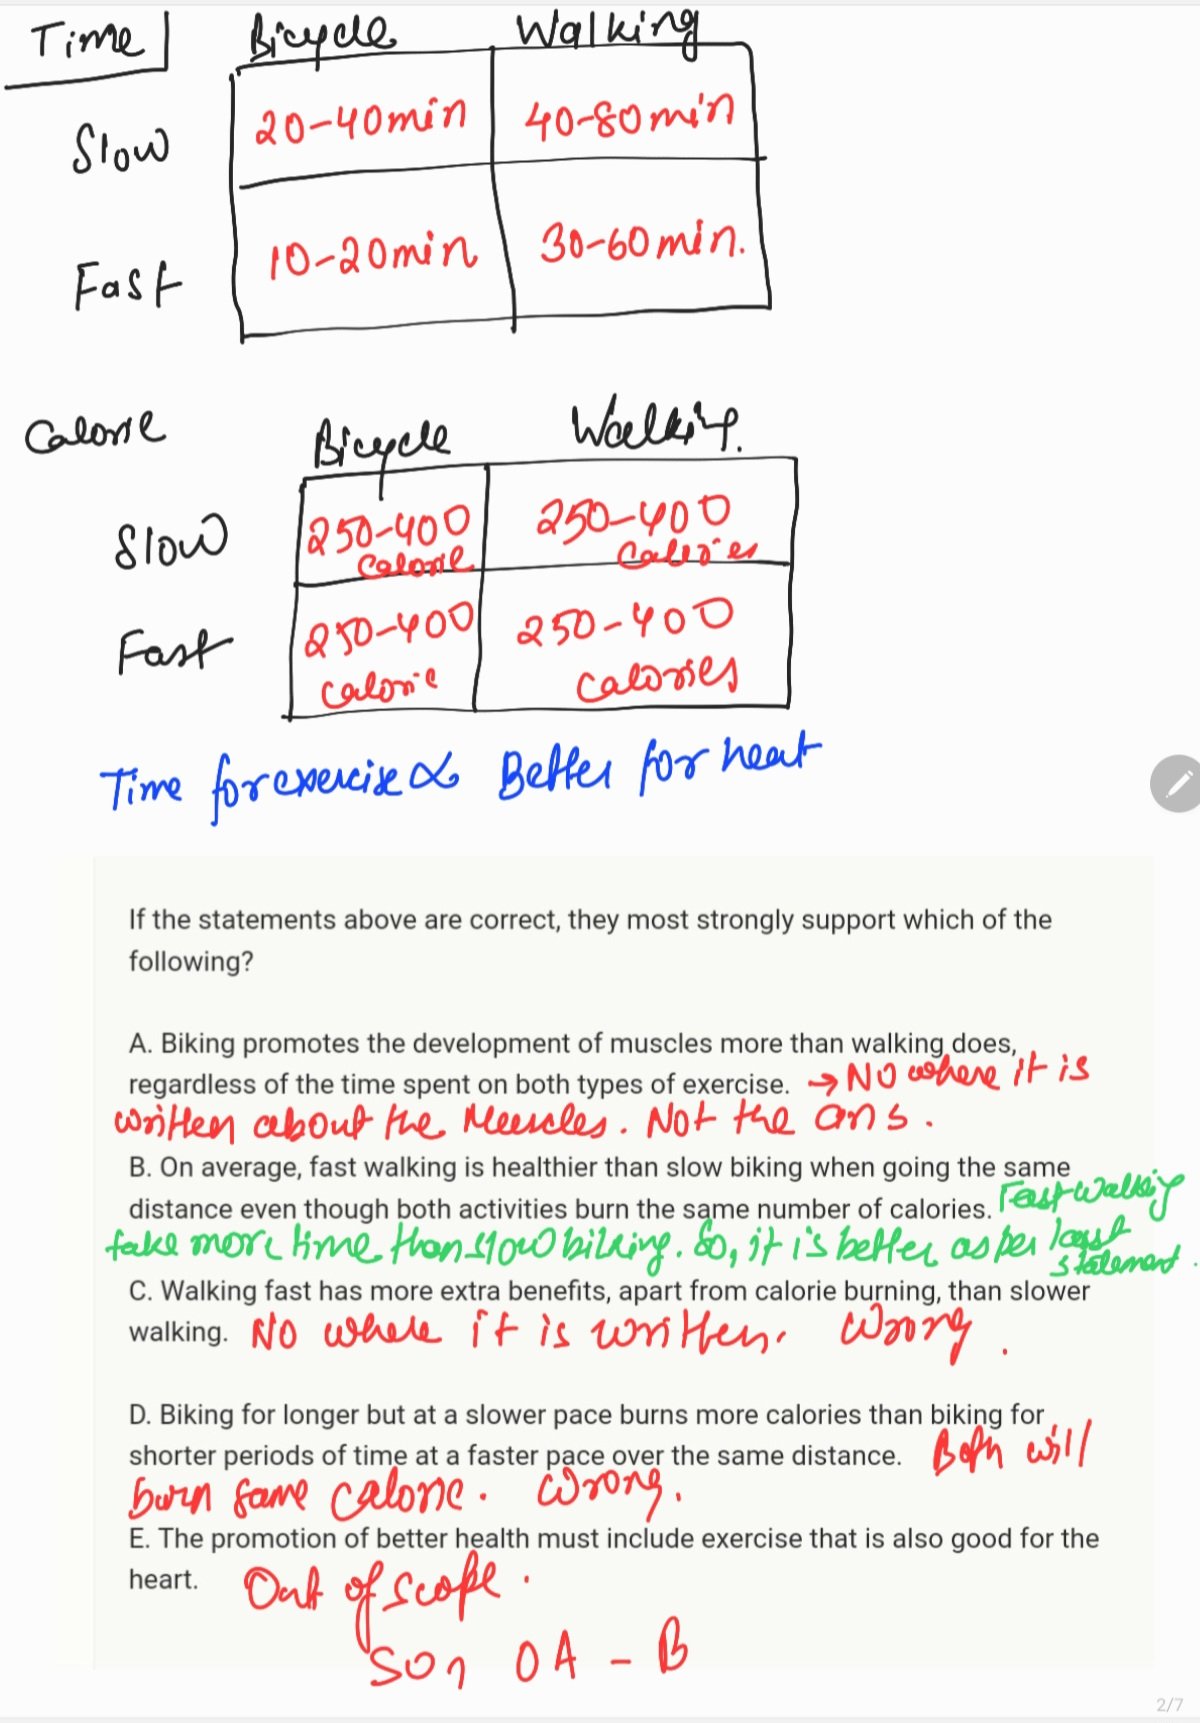 Time Bicycle Walking
Slow 20-40min 40-80min
Fast 10-20min 30-60min.
Calorie Bicycle Walking.
Slow 250-400 Calorie 250-400 Calories
Fast 250-400 calorie 250-400 calories
Time for exercise ∝ Better for heart
If the statements above are correct, they most strongly support which of the
following?
A. Biking promotes the development of muscles more than walking does,
regardless of the time spent on both types of exercise. → NO where it is
written about the Muscles. Not the ans.
B. On average, fast walking is healthier than slow biking when going the same
distance even though both activities burn the same number of calories. Fast walking
take more time than slow biking. So, it is better as per last
statement.
C. Walking fast has more extra benefits, apart from calorie burning, than slower
walking. NO where it is written. Wrong.
D. Biking for longer but at a slower pace burns more calories than biking for
shorter periods of time at a faster pace over the same distance. Both will
burn same calorie. Wrong.
E. The promotion of better health must include exercise that is also good for the
heart. Out of scope.
So, OA - B
2/7